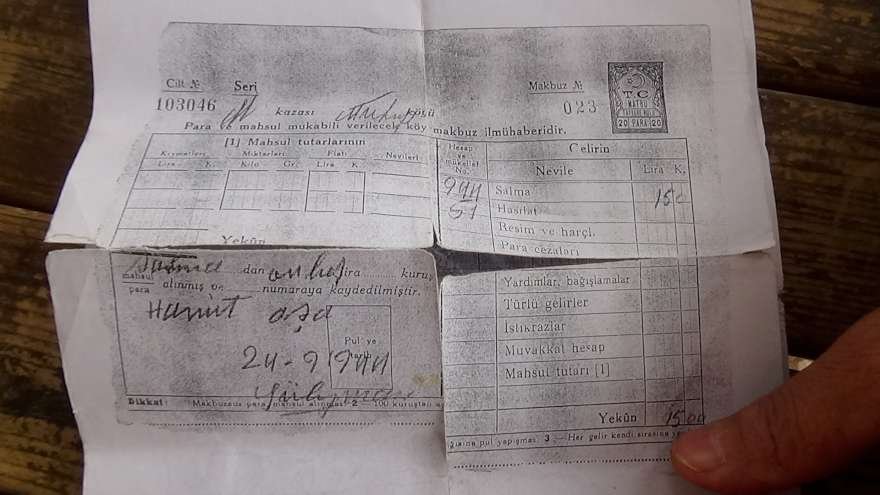 Cilt № Seri Makbuz №
103046 kazası 023
T.C.
MATBU
20 PARA 20
Para ve mahsul mukabili verilecek köy makbuz ilmühaberidir.
[1] Mahsul tutarlarının
Kıymetleri Miktarları Fiatı Nevileri
Lira K. Kilo Gr. Lira K.
Yekûn
Hesap ve mükellef No. Gelirin
Nevile Lira K.
944 Salma 15
51 Hasılat
Resim ve harçl.
Para cezaları
Yardımlar, bağışlamalar
Türlü gelirler
İstikrazlar
Muvakkat hesap
Mahsul tutarı [1]
Yekûn 15 00
dan on beş lira kuruş
mahsul
para alınmış numaraya kaydedilmiştir.
Hamit
Pul ve
tarih
24-9 1944
Dikkat: Makbuzsuz para mahsul alınmaz 2 — 100 kuruştan
pul yapışmaz. 3 — Her gelir kendi sırasına